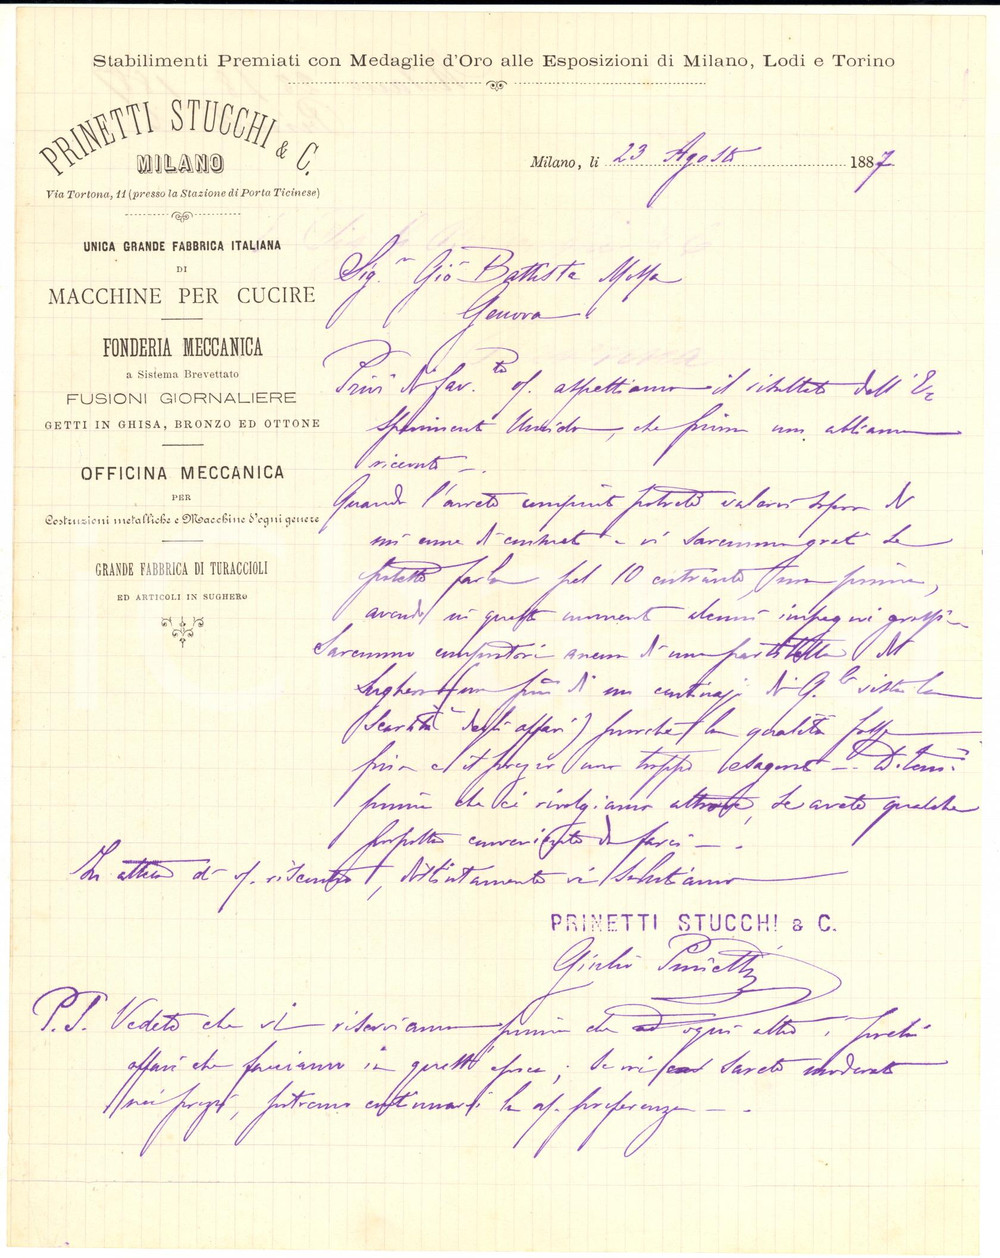 Stabilimenti Premiati con Medaglie d'Oro alle Esposizioni di Milano, Lodi e Torino
PRINETTI STUCCHI & C.
MILANO
Via Tortona, 11 (presso la Stazione di Porta Ticinese)
UNICA GRANDE FABBRICA ITALIANA
DI
MACCHINE PER CUCIRE
FONDERIA MECCANICA
a Sistema Brevettato
FUSIONI GIORNALIERE
GETTI IN GHISA, BRONZO ED OTTONE
OFFICINA MECCANICA
PER
Costruzioni metalliche e Macchine d'ogni genere
GRANDE FABBRICA DI TURACCIOLI
ED ARTICOLI IN SUGHERO
Milano, li 23 Agosto 1887
Sig.r Gio Battista
Genova
Privi di fav.to aspettiamo il risultato dell'
che finora non abbiamo
ricevuto
Quando l'avrete compiuto potrete valervi sopra di
noi come di consueto e vi saremmo grati se
poteste farlo pel 10 entrante, non prima,
avendo in questi momenti alcuni impegni grossi
Saremmo compratori ancora di una partitella di
Sughero (non più di un centinajo di Q.li vista la
scarsità degli affari) purchè la qualità fosse
fina e il prezzo non troppo esagerato
prima che ci rivolgiamo altrove, se avete qualche
proposta conveniente da farci
In attesa di v. riscontro, distintamente vi salutiamo
PRINETTI STUCCHI & C.
Giulio Prinetti
P.S. Vedete che vi riserviamo prima che ad ogni altro i pochi
affari che facciamo in quest'epoca; se voi sarete moderati
nei prezzi, potremo continuarvi la v. preferenza